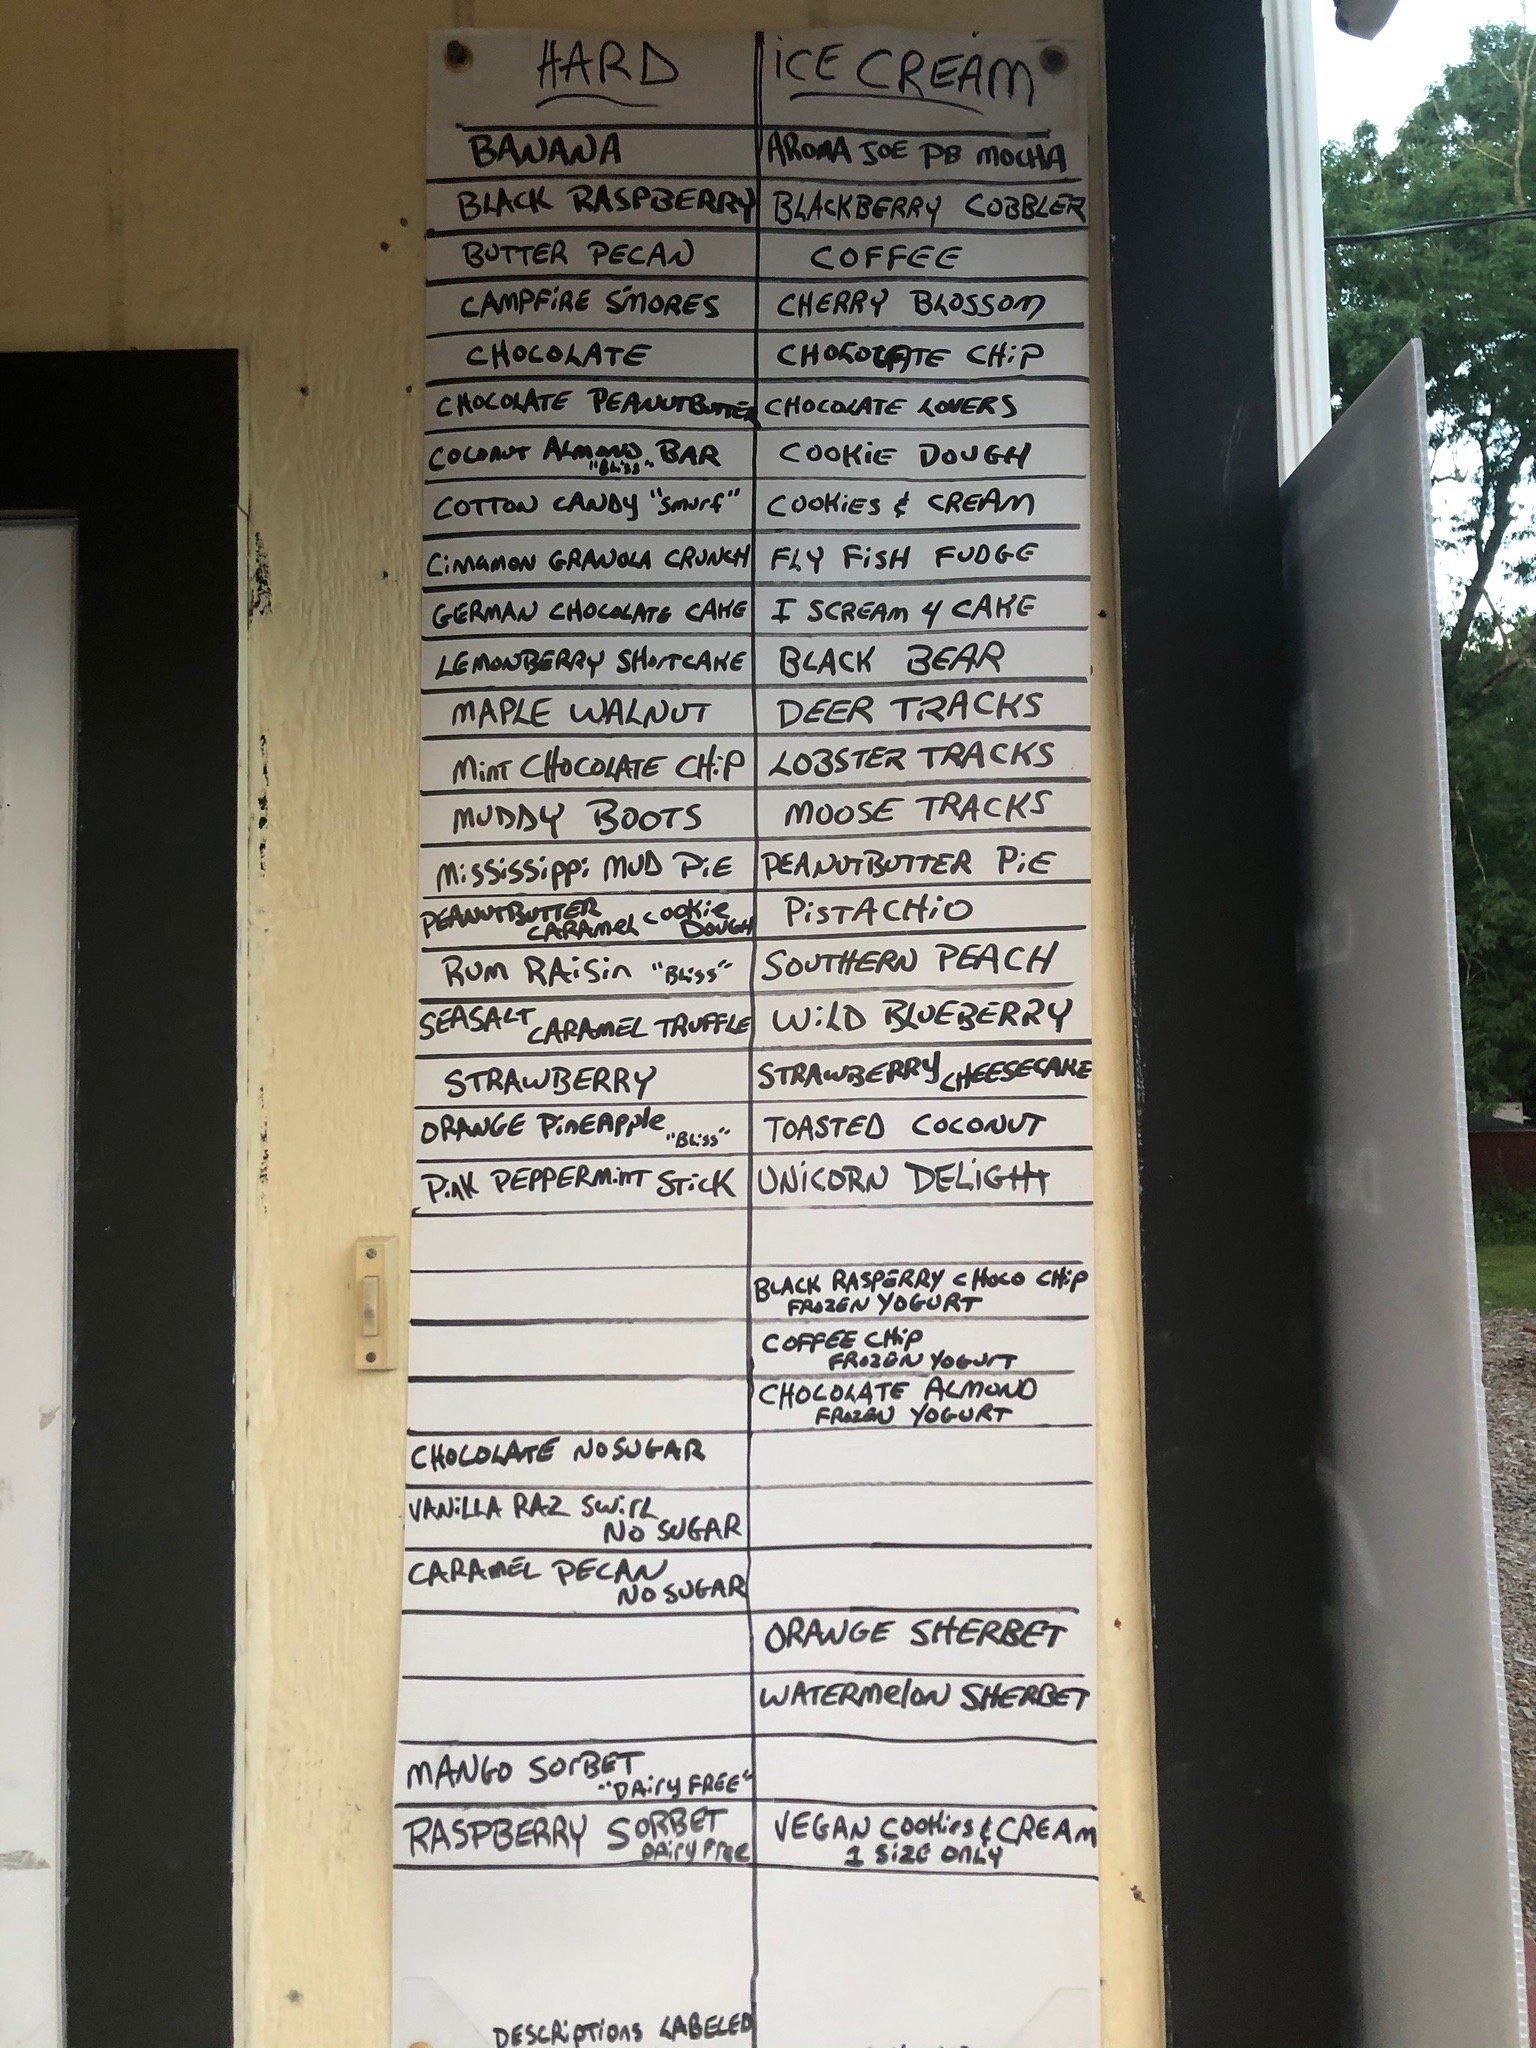 HARD ICE CREAM
BANANA AROMA JOE PB MOCHA
BLACK RASPBERRY BLACKBERRY COBBLER
BUTTER PECAN COFFEE
CAMPFIRE S'MORES CHERRY BLOSSOM
CHOCOLATE CHOCOLATE CHIP
CHOCOLATE PEANUTBUTTER CHOCOLATE LOVERS
COCONUT ALMOND BAR COOKIE DOUGH
"BLISS"
COTTON CANDY "Smurf" COOKIES & CREAM
CINNAMON GRANOLA CRUNCH FLY FISH FUDGE
GERMAN CHOCOLATE CAKE I SCREAM 4 CAKE
LEMONBERRY SHORTCAKE BLACK BEAR
MAPLE WALNUT DEER TRACKS
MINT CHOCOLATE CHIP LOBSTER TRACKS
MUDDY BOOTS MOOSE TRACKS
MISSISSIPPI MUD PIE PEANUTBUTTER PIE
PEANUTBUTTER CARAMEL COOKIE DOUGH PISTACHIO
RUM RAISIN "BLISS" SOUTHERN PEACH
SEASALT CARAMEL TRUFFLE WILD BLUEBERRY
STRAWBERRY STRAWBERRY CHEESECAKE
ORANGE PINEAPPLE "BLISS" TOASTED COCONUT
PINK PEPPERMINT STICK UNICORN DELIGHT
BLACK RASPERRY CHOCO CHIP
FROZEN YOGURT
COFFEE CHIP
FROZEN YOGURT
CHOCOLATE ALMOND
FROZEN YOGURT
CHOCOLATE NO SUGAR
VANILLA RAZ SWIRL
NO SUGAR
CARAMEL PECAN
NO SUGAR
ORANGE SHERBET
WATERMELON SHERBET
MANGO SORBET
"DAIRY FREE"
RASPBERRY SORBET VEGAN COOKIES & CREAM
DAIRY FREE 1 SIZE ONLY
DESCRIPTIONS LABELED